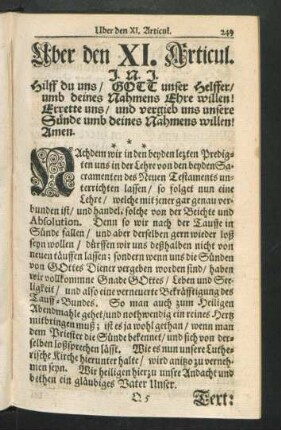 Uber den XI. Articul. 249
Uber den XI. Articul.
J. N. J.
Hilff du uns/ GOTT unser Helffer/
umb deines Nahmens Ehre willen!
Errette uns/ und vergieb uns unsere
Sünde umb deines Nahmens willen/
Amen.
* * *
NAchdem wir in den beyden letzten Predig-
ten uns in der Lehre von den beyden Sa-
cramenten des Neuen Testaments un-
terrichten lassen/ so folget nun eine
Lehre/ welche mit jener gar genau ver-
bunden ist/ und handelt solche von der Beichte und
Absolution. Denn so wir nach der Tauffe in
Sünde fallen/ und aber derselben gern wieder loß
seyn wollen/ dürffen wir uns deßhalben nicht von
neuen täuffen lassen/ sondern wenn uns die Sünde
von GOttes Diener vergeben worden sind/ haben
wir vollkommne Gnade GOttes/ Leben und Se-
ligkeit/ und also eine verneuerte Bekräfftigung des
Tauff-Bundes. So man auch zum Heiligen
Abendmahle gehet/ und nothwendig ein reines Hertz
mitbringen muß; ist es ja wohl gethan/ wenn man
dem Priester die Sünde bekennet/ und sich von der-
selben loßsprechen lässt. Wie es nun unsere Luthe-
rische Kirche hierunter halte/ wird anitzo zu verneh-
men seyn. Wir heiligen hierzu unsere Andacht und
bethen ein gläubiges Vater Unser.
Q 5 Text: